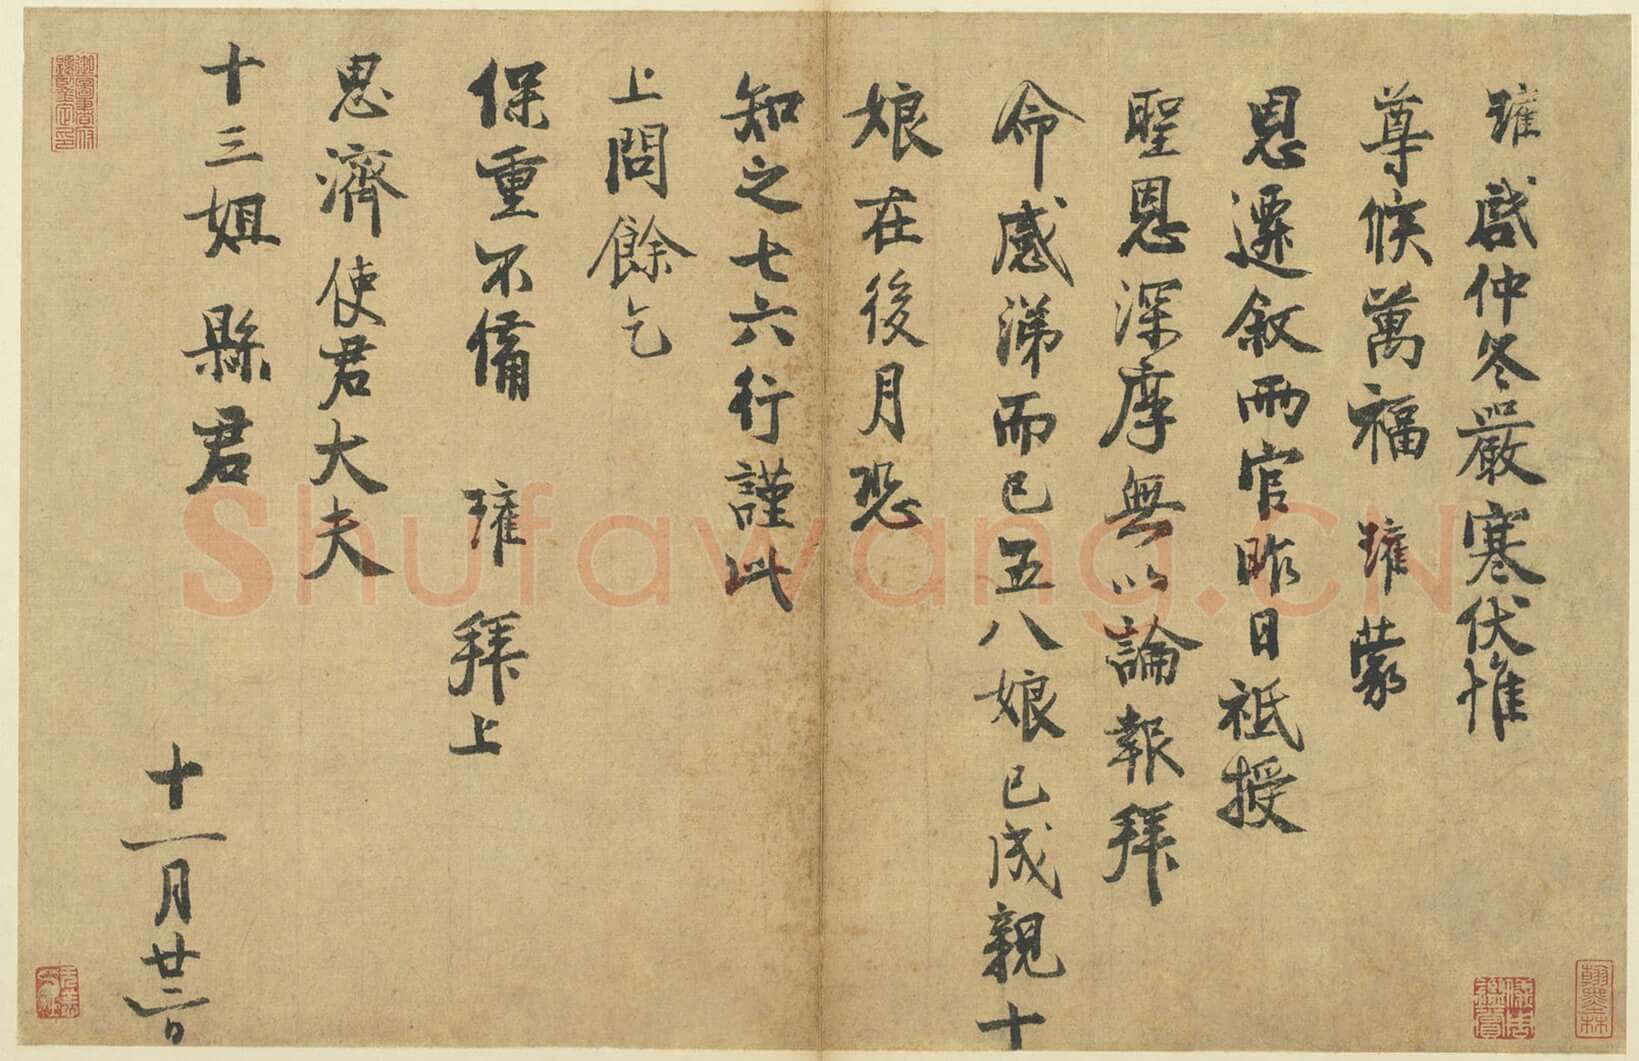 瓘啟仲冬嚴寒伏惟
尊候萬福瓘蒙
恩遷敘兩官昨日祗授
聖恩深厚無以論報拜
命感涕而已五八娘已成親十
娘在後月恐
知之七六行謹此
上問餘乞
保重不備 瓘 拜上
思濟使君大夫
十三姐縣君
十一月廿三日
Shufawang.CN
翰墨林